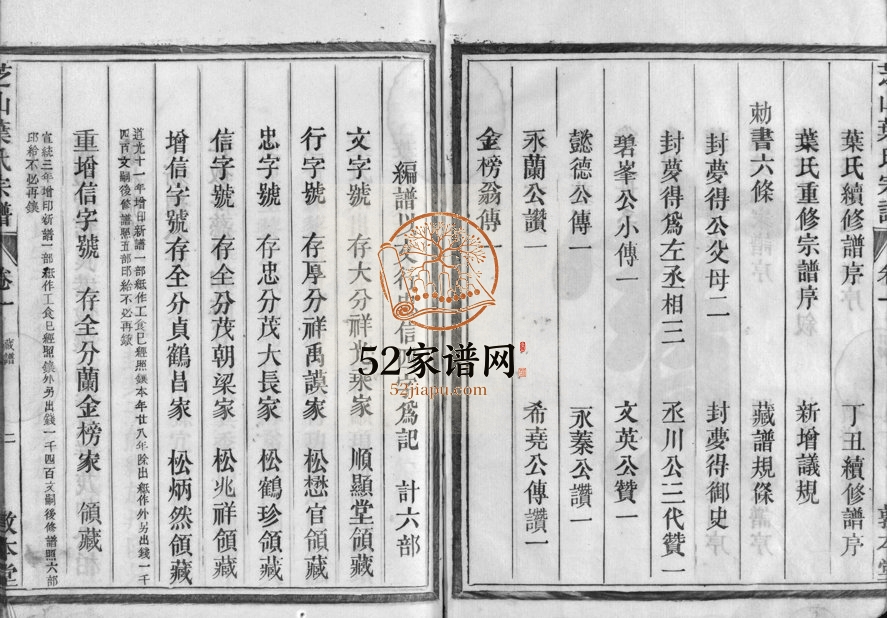 葉氏續修譜序 丁丑續修譜序
葉氏重修宗譜序 新增議規
勑書六條 藏譜規條
封夢得公父母二 封夢得御史
封夢得爲左丞相三 丞川公三代贊一
碧峯公小傳一 文英公贊一
懿德公傳一 永蓁公讚一
永蘭公讚一 希堯公傳讚一
金榜翁傳一
編譜以文行忠信 爲記 計六部
文字號 存大分祥兆 家 順顯堂領藏
行字號 存厚分祥禹謨家 松懋官領藏
忠字號 存忠分茂大長家 松鶴珍領藏
信字號 存全分茂朝梁家 松兆祥領藏
增信字號 存全分貞鶴昌家 松炳然領藏
道光十一年增印新譜一部紙作工食已經照 本年廿八年除出紙作外另出錢一千
四百文嗣後修譜照五部邱給不必再
重增信字號 存全分蘭金榜家 領藏
宣統三年增印新譜一部紙作工食已經照 外另出錢一千四百文嗣後修譜照六部
邱給不必再
芝山葉氏宗譜 卷一 藏譜 二 敦本堂
52家谱网
52jiapu.com